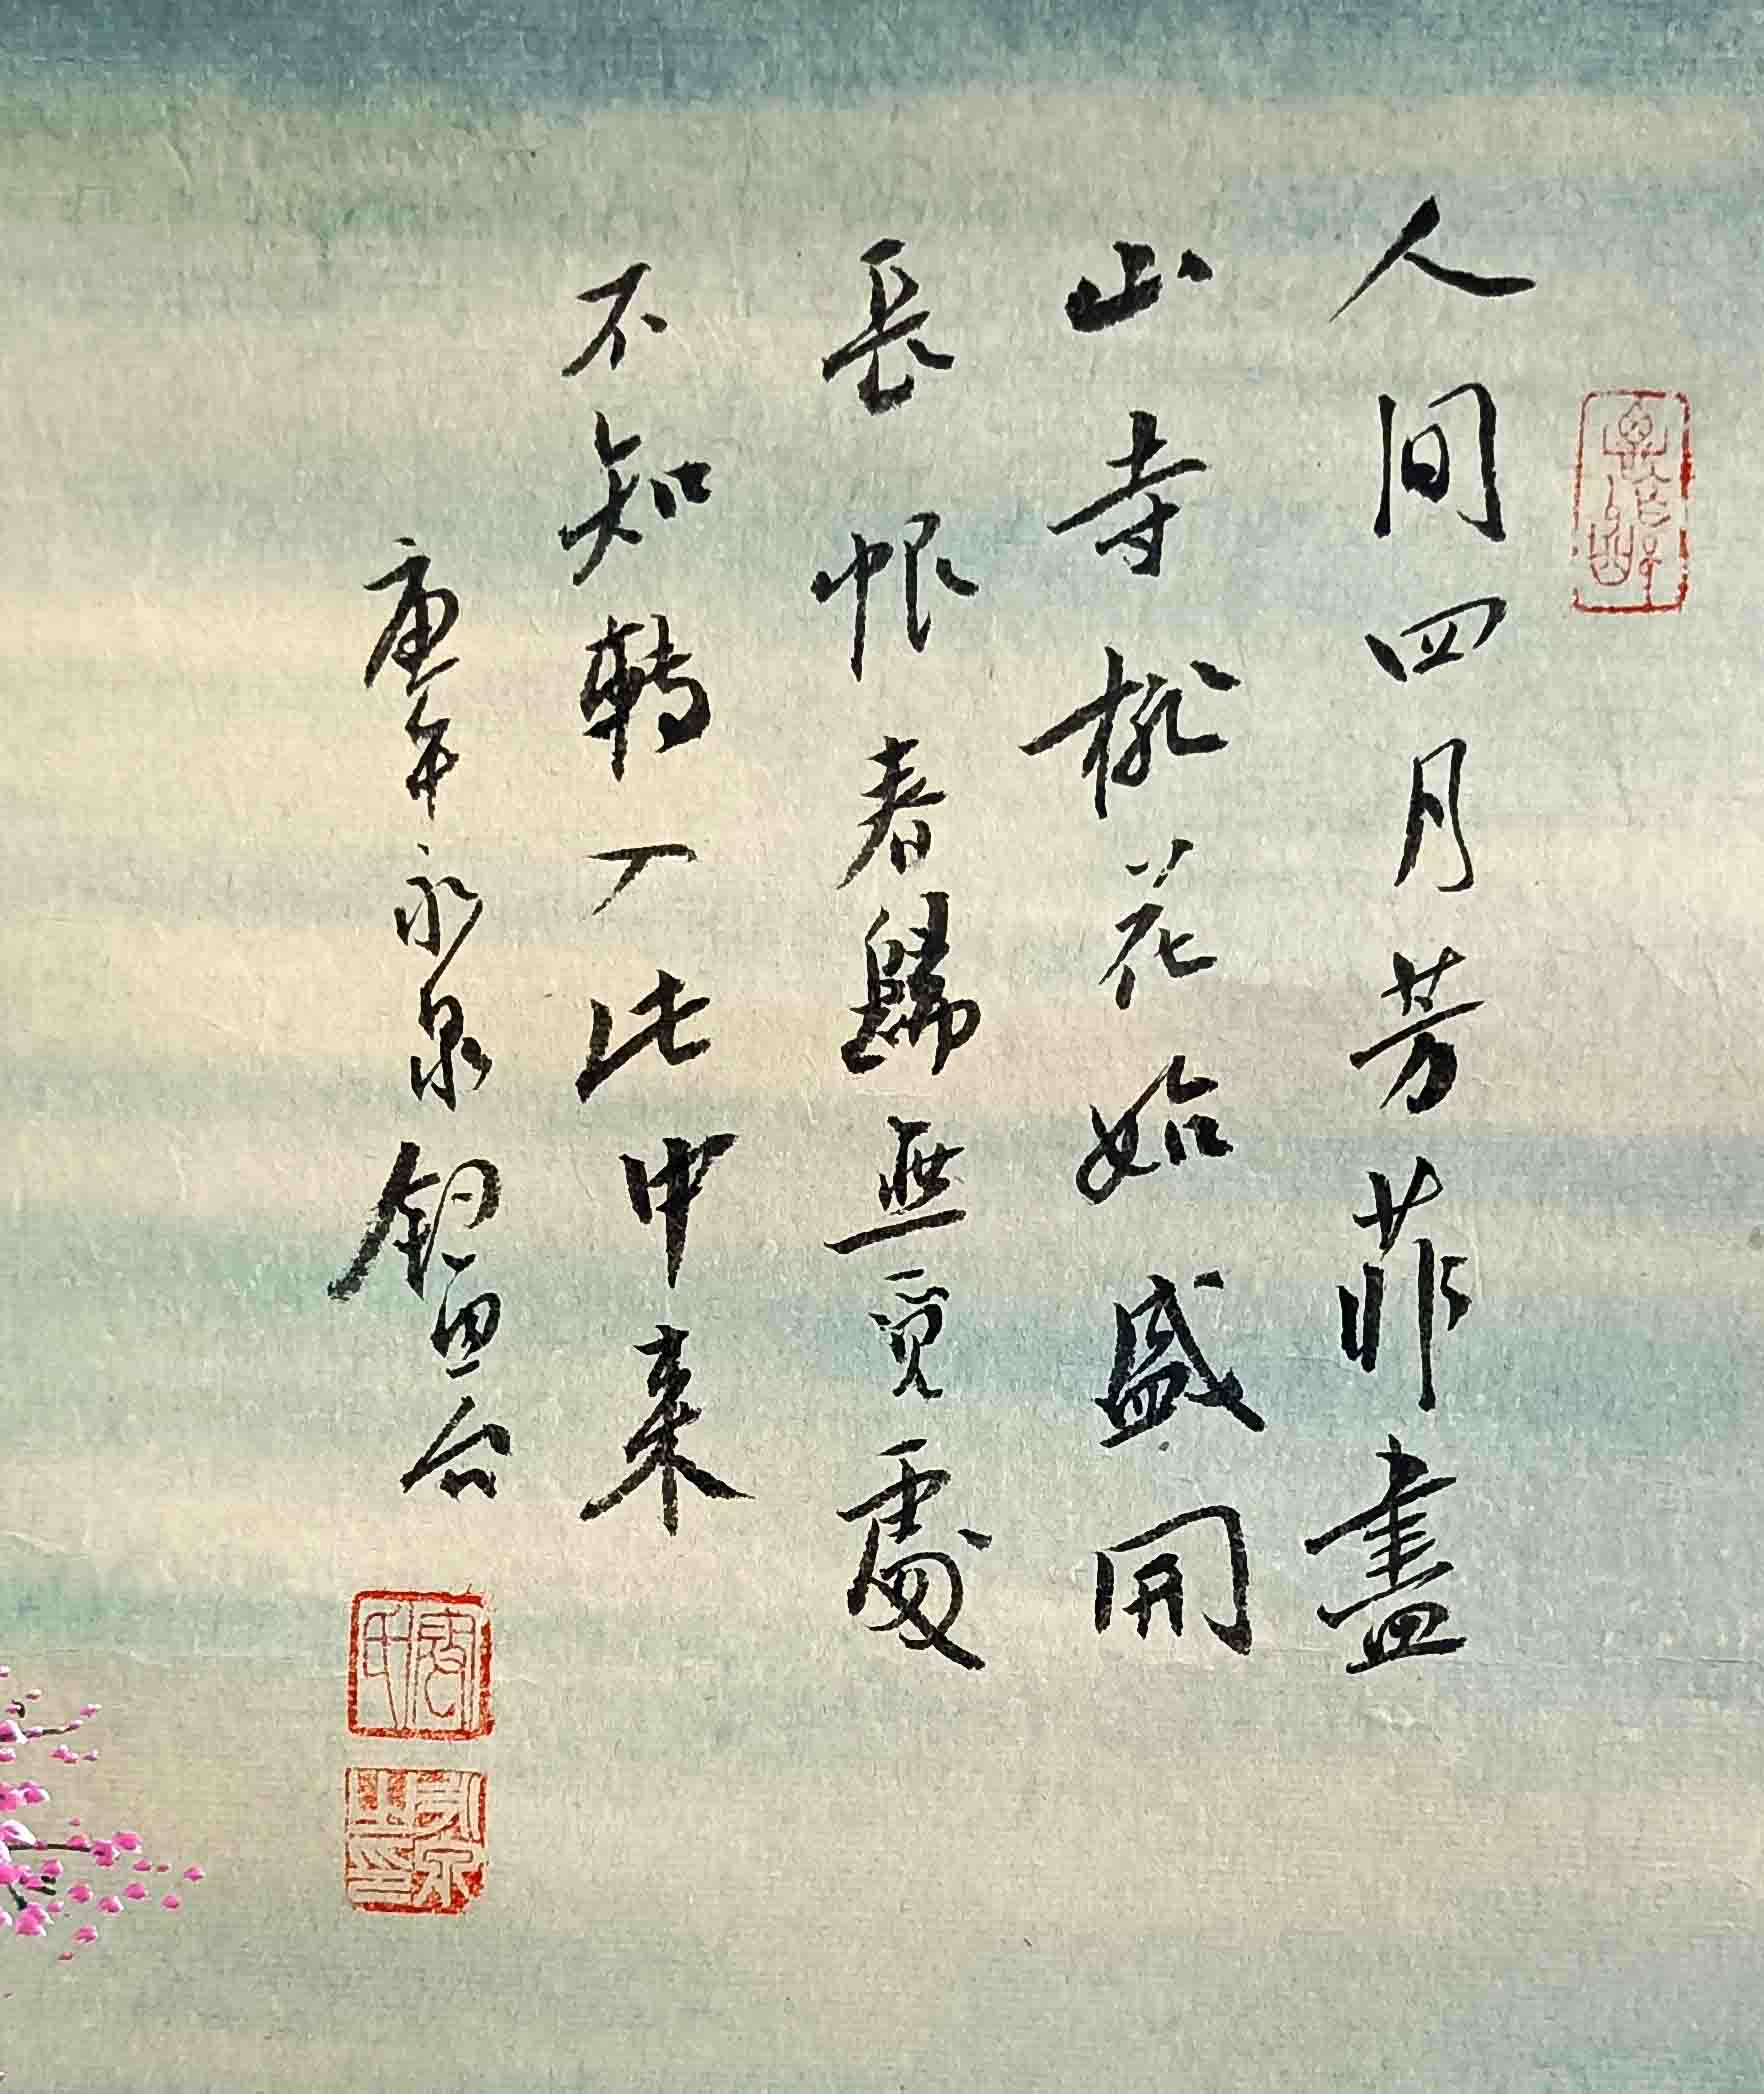 人間四月芳菲盡
山寺桃花始盛開
長恨春歸無覓處
不知轉入此中来
永泉